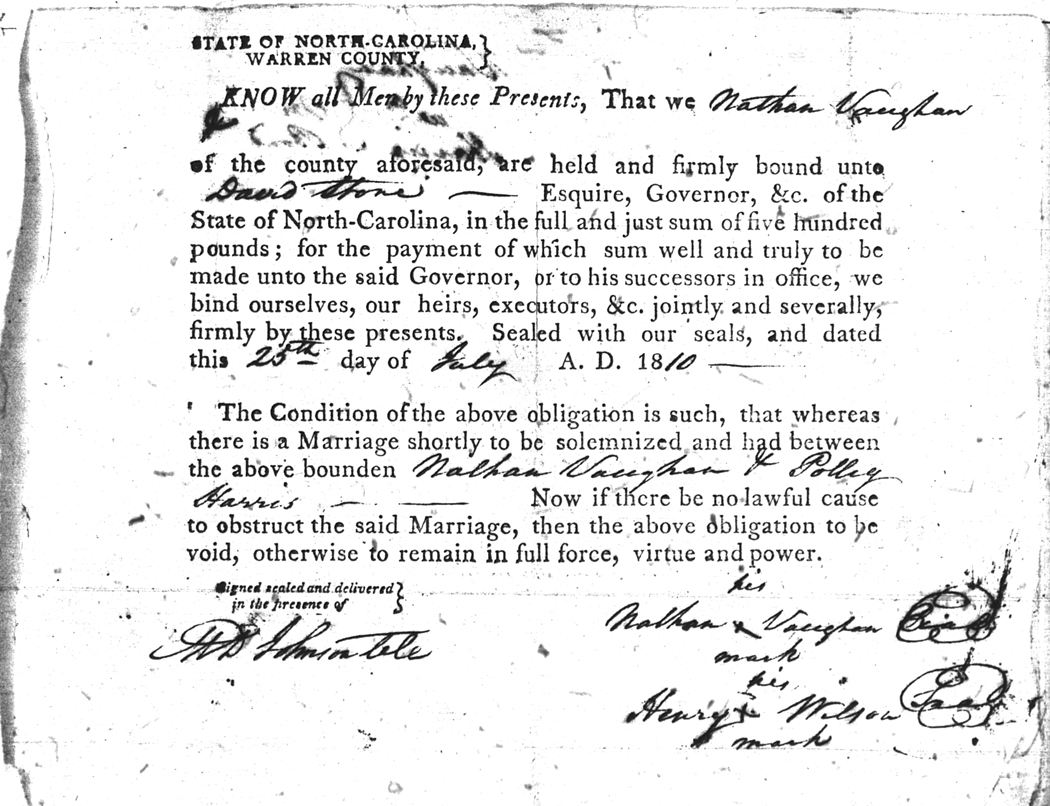 STATE OF NORTH-CAROLINA,
WARREN COUNTY.
KNOW all Men by these Presents, That we Nathan Vaughan
&
of the county aforesaid, are held and firmly bound unto
David Stone — Esquire, Governor, &c. of the
State of North-Carolina, in the full and just sum of five hundred
pounds; for the payment of which sum well and truly to be
made unto the said Governor, or to his successors in office, we
bind ourselves, our heirs, executors, &c. jointly and severally,
firmly by these presents. Sealed with our seals, and dated
this 25th day of July A. D. 1810 —
The Condition of the above obligation is such, that whereas
there is a Marriage shortly to be solemnized and had between
the above bounden Nathan Vaughan & Polley
Harris — — Now if there be no lawful cause
to obstruct the said Marriage, then the above obligation to be
void, otherwise to remain in full force, virtue and power.
Signed sealed and delivered
in the presence of
his
Nathan x Vaughan Seal
mark
Johnson
his
Henry x Wilson Seal
mark